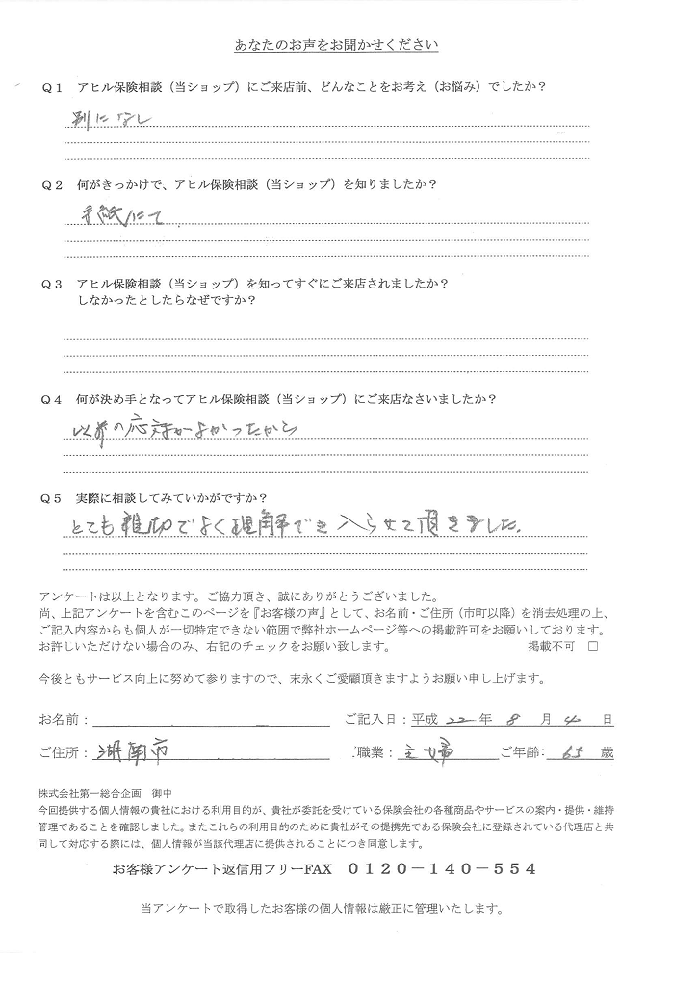 あなたのお声をお聞かせください
Q1 アヒル保険相談（当ショップ）にご来店前、どんなことをお考え（お悩み）でしたか？
別になし
Q2 何がきっかけで、アヒル保険相談（当ショップ）を知りましたか？
手紙にて
Q3 アヒル保険相談（当ショップ）を知ってすぐにご来店されましたか？
しなかったとしたらなぜですか？
Q4 何が決め手となってアヒル保険相談（当ショップ）にご来店なさいましたか？
以前の応対がよかったから
Q5 実際に相談してみていかがですか？
とても親切でよく理解でき入らせて頂きました。
アンケートは以上となります。ご協力頂き、誠にありがとうございました。
尚、上記アンケートを含むこのページを『お客様の声』として、お名前・ご住所（市町以降）を消去処理の上、
ご記入内容からも個人が一切特定できない範囲で弊社ホームページ等への掲載許可をお願いしております。
お許しいただけない場合のみ、右記のチェックをお願い致します。 掲載不可 □
今後ともサービス向上に努めて参りますので、末永くご愛顧頂きますようお願い申し上げます。
お名前： ご記入日：平成 22 年 8 月 4 日
ご住所： 湖南市 ご職業： 主婦 ご年齢： 65 歳
株式会社第一総合企画 御中
今回提供する個人情報の貴社における利用目的が、貴社が委託を受けている保険会社の各種商品やサービスの案内・提供・維持
管理であることを確認しました。またこれらの利用目的のために貴社がその提携先である保険会社に登録されている代理店と共
同して対応する際には、個人情報が当該代理店に提供されることにつき同意します。
お客様アンケート返信用フリーFAX 0120－140－554
当アンケートで取得したお客様の個人情報は厳正に管理いたします。